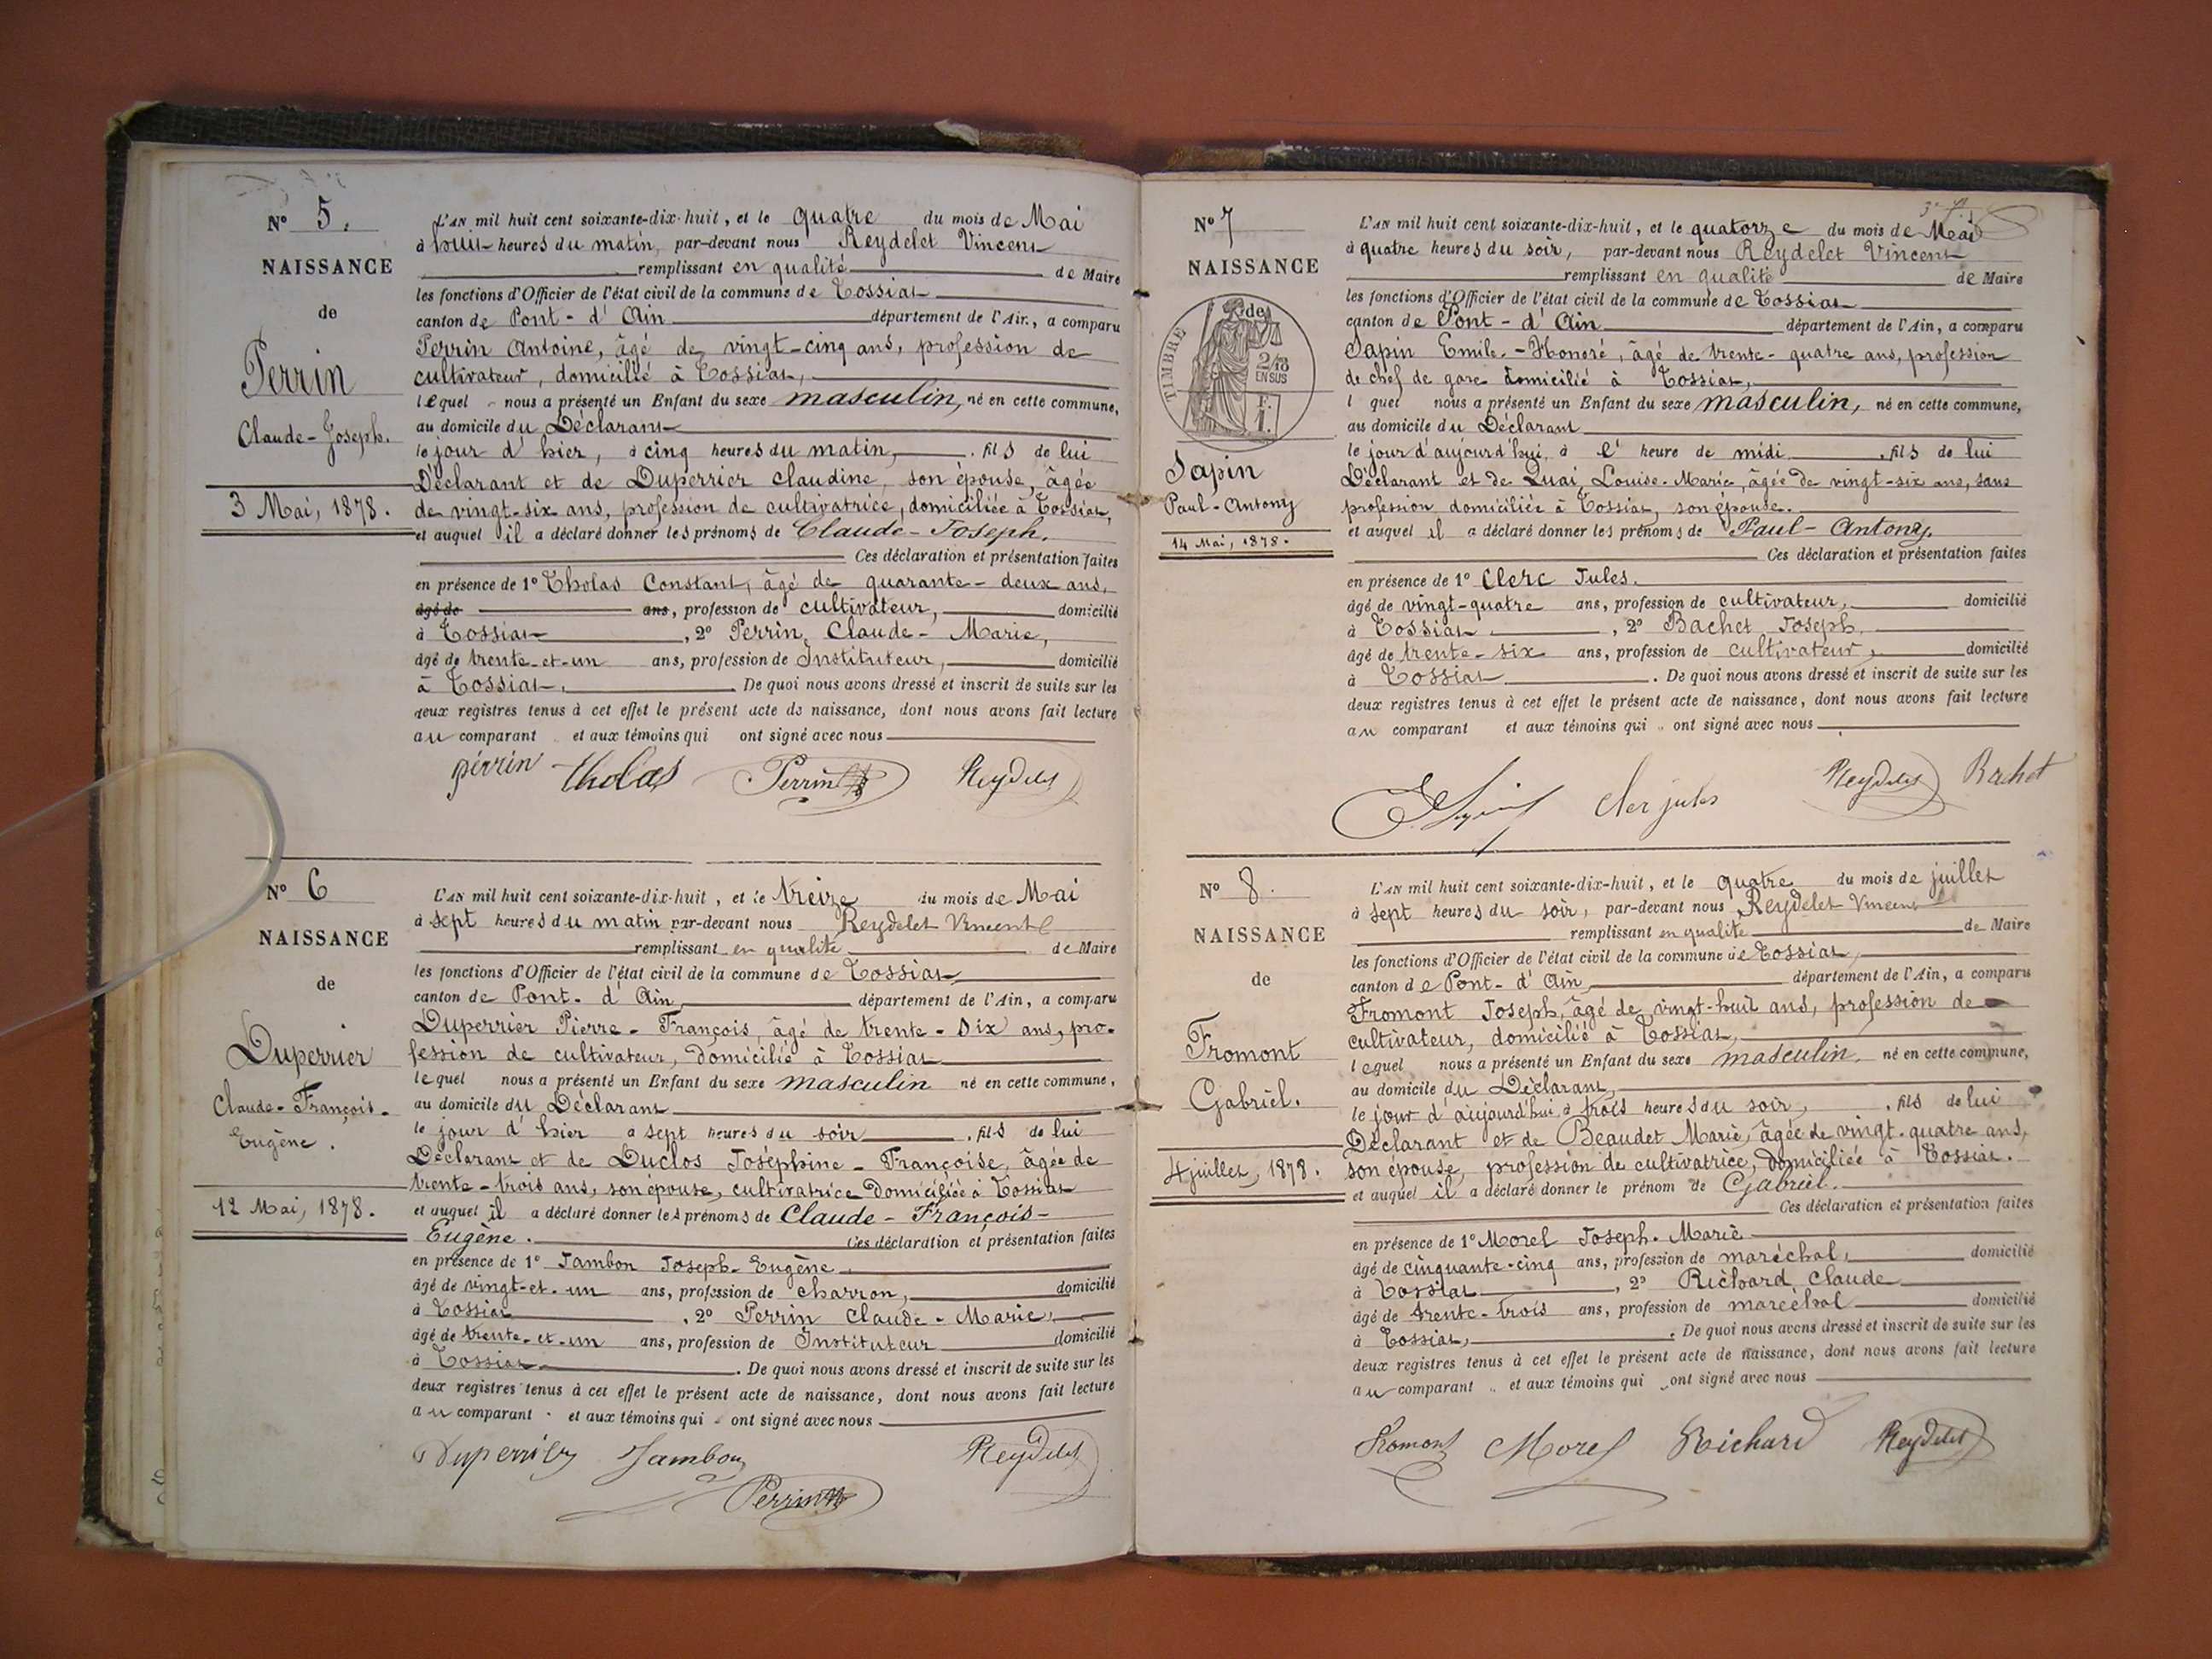 N° 5.
NAISSANCE
de
Perrin
Claude-Joseph.
3 Mai, 1878.
L'AN mil huit cent soixante-dix-huit, et le quatre du mois de Mai
à huit heures du matin, par-devant nous Reydelet Vincent
remplissant en qualité de Maire
les fonctions d'Officier de l'état civil de la commune de Tossiat
canton de Pont-d'Ain département de l'Ain, a comparu
Perrin Antoine, âgé de vingt-cinq ans, profession de
cultivateur, domicilié à Tossiat,
lequel nous a présenté un Enfant du sexe masculin, né en cette commune,
au domicile du Déclarant
le jour d'hier, à cinq heures du matin, . fils de lui
Déclarant et de Duperrier Claudine, son épouse, âgée
de vingt-six ans, profession de cultivatrice, domiciliée à Tossiat,
et auquel il a déclaré donner les prénoms de Claude-Joseph.
Ces déclaration et présentation faites
en présence de 1° Tholas Constant, âgé de quarante-deux ans,
âgé de ans, profession de cultivateur, domicilié
à Tossiat , 2° Perrin, Claude-Marie,
âgé de trente-et-un ans, profession de Instituteur, domicilié
à Tossiat. . De quoi nous avons dressé et inscrit de suite sur les
deux registres tenus à cet effet le présent acte de naissance, dont nous avons fait lecture
au comparant et aux témoins qui ont signé avec nous
perrin Tholas Perrin Reydelet
N° 6
NAISSANCE
de
Duperrier
Claude-François-
Eugène.
12 Mai, 1878.
L'AN mil huit cent soixante-dix-huit, et le treize du mois de Mai
à sept heures du matin par-devant nous Reydelet Vincent
remplissant en qualité de Maire
les fonctions d'Officier de l'état civil de la commune de Tossiat
canton de Pont-d'Ain département de l'Ain, a comparu
Duperrier Pierre-François, âgé de trente-six ans, pro-
fession de cultivateur, domicilié à Tossiat
lequel nous a présenté un Enfant du sexe masculin né en cette commune,
au domicile du Déclarant
le jour d'hier à sept heures du soir . fils de lui
Déclarant et de Duclos Joséphine-Françoise, âgée de
trente-trois ans, son épouse, cultivatrice domiciliée à Tossiat
et auquel il a déclaré donner les prénoms de Claude-François-
Eugène. Ces déclaration et présentation faites
en présence de 1° Jambon Joseph-Eugène
âgé de vingt-et-un ans, profession de charron, domicilié
à Tossiat , 2° Perrin Claude-Marie,
âgé de trente-et-un ans, profession de Instituteur domicilié
à Tossiat . De quoi nous avons dressé et inscrit de suite sur les
deux registres tenus à cet effet le présent acte de naissance, dont nous avons fait lecture
au comparant et aux témoins qui ont signé avec nous
Duperrier Jambon Reydelet
Perrin
N° 7
NAISSANCE
de
TIMBRE
2/10
EN SUS
Sapin
Paul-Antony
14 Mai, 1878.
L'AN mil huit cent soixante-dix-huit, et le quatorze du mois de Mai
à quatre heures du soir, par-devant nous Reydelet Vincent
remplissant en qualité de Maire
les fonctions d'Officier de l'état civil de la commune de Tossiat
canton de Pont-d'Ain département de l'Ain, a comparu
Sapin Emile-Honoré, âgé de trente-quatre ans, profession
de chef de gare domicilié à Tossiat,
l quel nous a présenté un Enfant du sexe masculin, né en cette commune,
au domicile du Déclarant
le jour d'aujourd'hui, à l' heure de midi . fils de lui
Déclarant et de Quai, Louise-Marie, âgée de vingt-six ans, sans
profession domiciliée à Tossiat, son épouse.
et auquel il a déclaré donner les prénoms de Paul-Antony.
Ces déclaration et présentation faites
en présence de 1° Clerc Jules.
âgé de vingt-quatre ans, profession de cultivateur, domicilié
à Tossiat , 2° Bachet Joseph.
âgé de trente-six ans, profession de cultivateur, domicilié
à Tossiat . De quoi nous avons dressé et inscrit de suite sur les
deux registres tenus à cet effet le présent acte de naissance, dont nous avons fait lecture
au comparant et aux témoins qui ont signé avec nous
Cler jules Reydelet Bachet
N° 8.
NAISSANCE
de
Fromont
Gabriel.
4 juillet, 1878.
L'AN mil huit cent soixante-dix-huit, et le quatre du mois de juillet
à sept heures du soir, par-devant nous Reydelet Vincent
remplissant en qualité de Maire
les fonctions d'Officier de l'état civil de la commune de Tossiat,
canton de Pont-d'Ain département de l'Ain, a comparu
Fromont Joseph, âgé de vingt-huit ans, profession de
cultivateur, domicilié à Tossiat,
lequel nous a présenté un Enfant du sexe masculin, né en cette commune,
au domicile du Déclarant,
le jour d'aujourd'hui à trois heures du soir, . fils de lui
Déclarant et de Beaudet Marie, âgée de vingt-quatre ans,
son épouse, profession de cultivatrice, domiciliée à Tossiat.
et auquel il a déclaré donner le prénom de Gabriel.
Ces déclaration et présentation faites
en présence de 1° Morel Joseph-Marie
âgé de cinquante-cinq ans, profession de maréchal, domicilié
à Tossiat , 2° Richard Claude
âgé de trente-trois ans, profession de maréchal domicilié
à Tossiat, . De quoi nous avons dressé et inscrit de suite sur les
deux registres tenus à cet effet le présent acte de naissance, dont nous avons fait lecture
au comparant et aux témoins qui ont signé avec nous
Fromont Morel Richard Reydelet